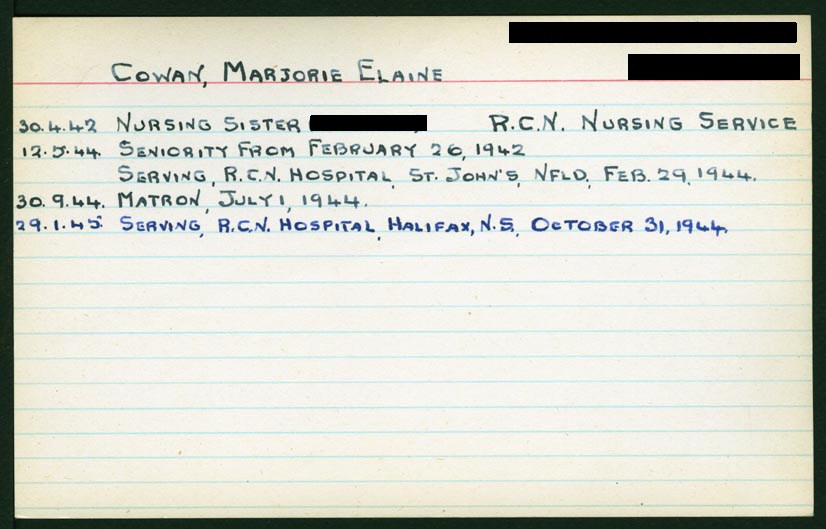 COWAN, MARJORIE ELAINE
30.4.42 NURSING SISTER R.C.N. NURSING SERVICE
12.5.44. SENIORITY FROM FEBRUARY 26, 1942
SERVING, R.C.N. HOSPITAL, ST. JOHN'S, NFLD, FEB. 29, 1944.
30.9.44. MATRON, JULY 1, 1944.
29.1.45. SERVING, R.C.N. HOSPITAL, HALIFAX, N.S., OCTOBER 31, 1944.